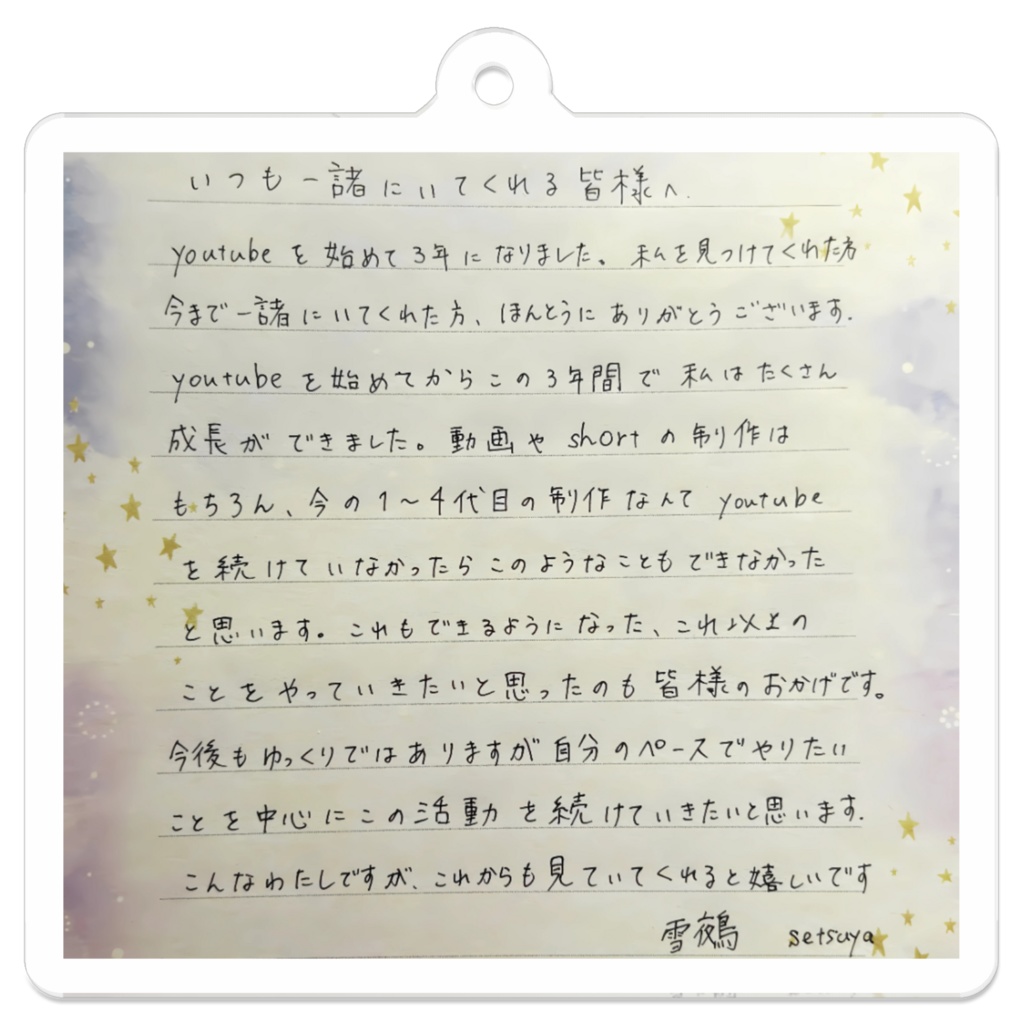 いつも一諸にいてくれる皆様へ.
youtubeを始めて3年になりました。私を見つけてくれた方
今まで一諸にいてくれた方、ほんとうにありがとうございます.
youtubeを始めてからこの3年間で私はたくさん
成長ができました。動画やshortの制作は
もちろん、今の1～4代目の制作なんてyoutube
を続けていなかったらこのようなこともできなかった
と思います。これもできるようになった、これ以上の
ことをやっていきたいと思ったのも皆様のおかげです。
今後もゆっくりではありますが自分のペースでやりたい
ことを中心にこの活動を続けていきたいと思います.
こんなわたしですが、これからも見ていてくれると嬉しいです
雪鵺 setsuya